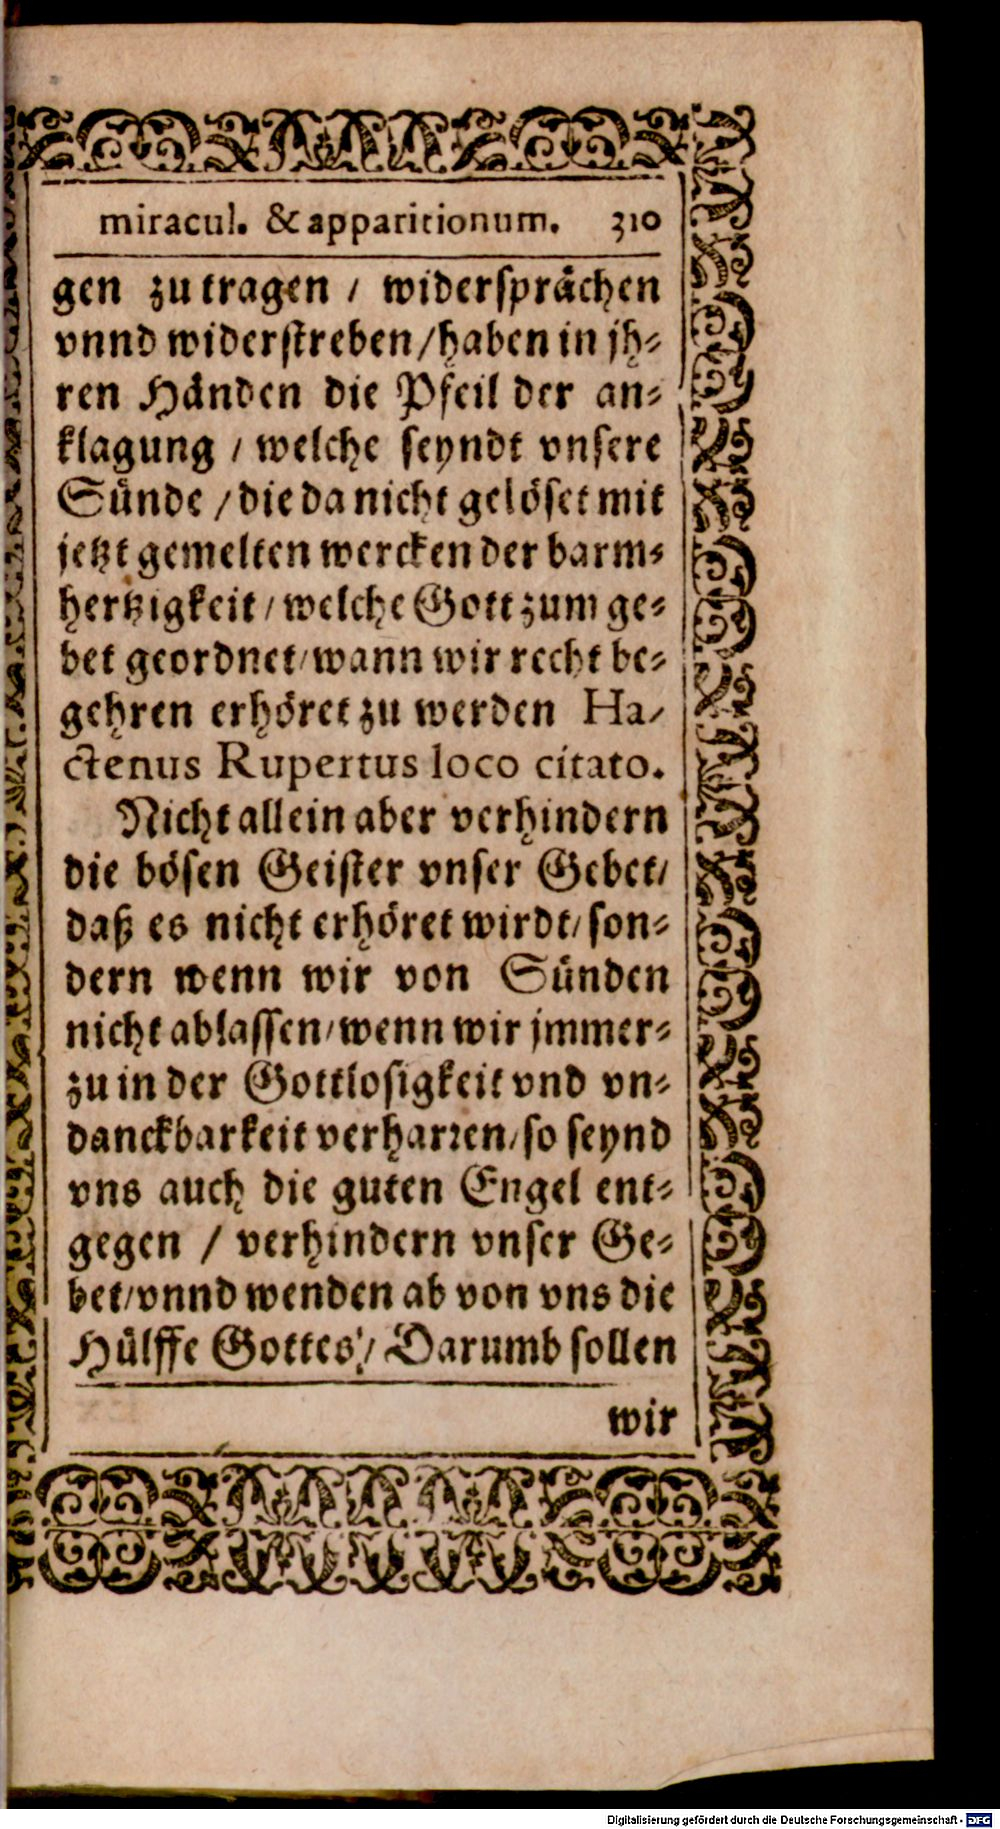 miracul. & apparitionum. 310
gen zu tragen / widersprächen
vnnd widerstreben / haben in jh-
ren Händen die Pfeil der an-
klagung / welche seyndt vnsere
Sünde / die da nicht gelöset mit
jetzt gemelten wercken der barm-
hertzigkeit / welche Gott zum ge-
bet geordnet / wann wir recht be-
gehren erhöret zu werden Ha-
ctenus Rupertus loco citato.
Nicht allein aber verhindern
die bösen Geister vnser Gebet /
daß es nicht erhöret wirdt / son-
dern wenn wir von Sünden
nicht ablassen / wenn wir jmmer-
zu in der Gottlosigkeit vnd vn-
danckbarkeit verharren / so seynd
vns auch die guten Engel ent-
gegen / verhindern vnser Ge-
bet / vnnd wenden ab von vns die
Hülffe Gottes / Darumb sollen
wir
Digitalisierung gefördert durch die Deutsche Forschungsgemeinschaft - DFG